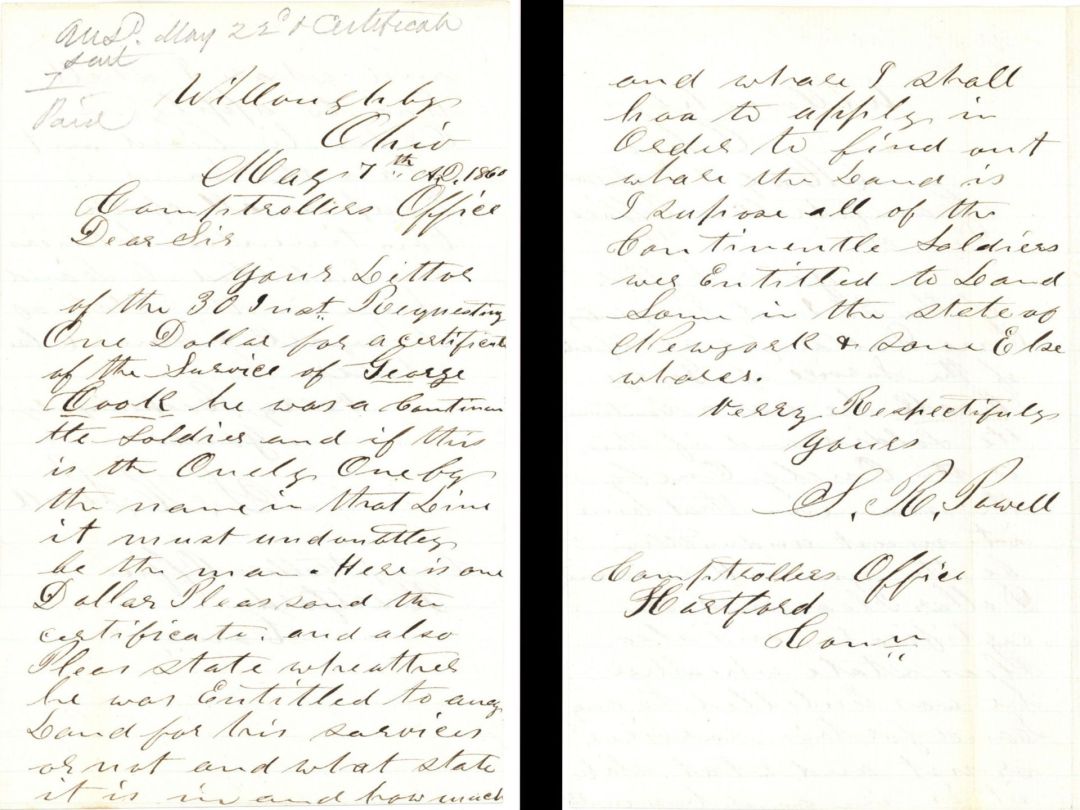 Ansd. May 22d & Certificate
sent
7
Paid
Willoughby
Ohio
May 7th A.D. 1860
Comptrollers Office
Dear Sir
your Litter
of the 30 Inst. Requesting
One Dollar for a certificate
of the Survice of George
Cook he was a Continen
tle Soldier and if this
is the Onely One by
the name in that Line
it must undoubtley
be the man. Here is one
Dollar Pleas send the
certificate. and also
Pleas state wheather
he was Entitled to any
Land for his services
or not and what state
it is in and how much
and whare I shall
hav to apply in
Order to find out
whare the Land is
I supose all of the
Continentle Soldiers
wer Entitled to Land
Some in the state of
Newyork & some Else
whares.
Verry Respectifuly
yours
S. R. Powell
Comptrollers Office
Hartford
Conn